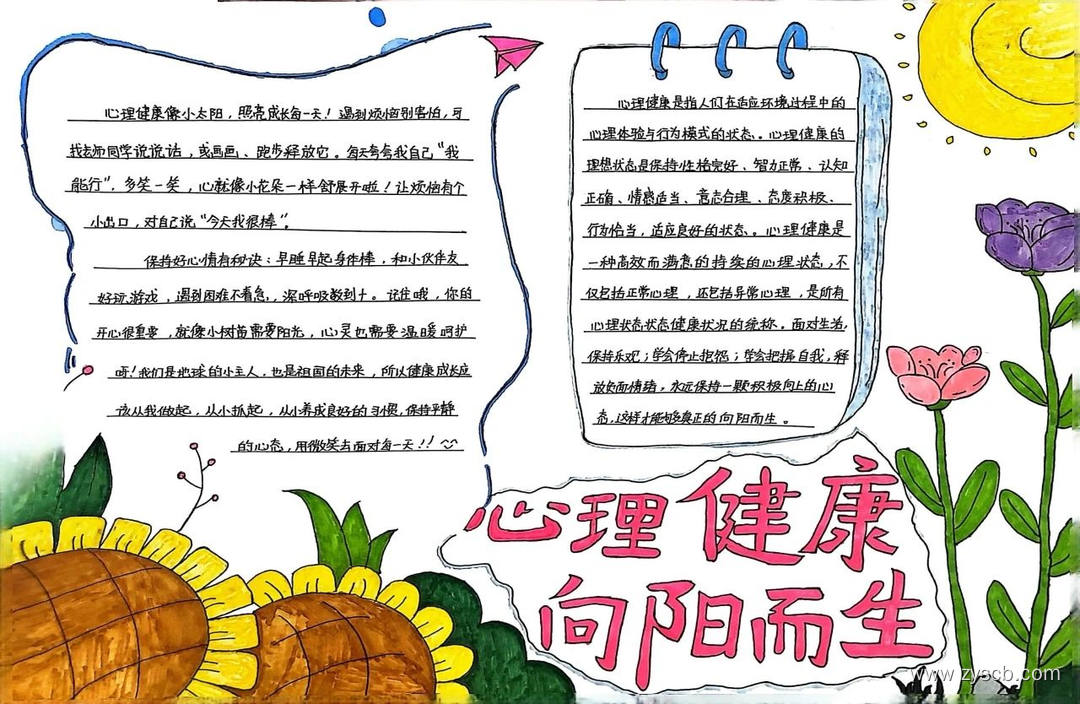 心理健康像小太阳，照亮成长每一天！遇到烦恼别害怕，可
找老师同学说说话，或画画、跑步释放它。每天夸夸我自己“我
能行”，多笑一笑，心就像小花朵一样舒展开啦！让烦恼有个
小出口，对自己说“今天我很棒”。
保持好心情有秘诀：早睡早起身体棒，和小伙伴友
好玩游戏，遇到困难不着急，深呼吸数到十。记住哦，你的
开心很重要，就像小树苗需要阳光，心灵也需要温暖呵护
呀！我们是地球的小主人，也是祖国的未来，所以健康成长应
该从我做起，从小抓起，从小养成良好的习惯，保持平静
的心态，用微笑去面对每一天！！
心理健康是指人们在适应环境过程中的
心理体验与行为模式的状态。心理健康的
理想状态是保持性格完好、智力正常、认知
正确、情感适当、意志合理、态度积极、
行为恰当，适应良好的状态。心理健康是
一种高效而满意的持续的心理状态，不
仅包括正常心理，还包括异常心理，是所有
心理状态状态健康状况的统称。面对生活，
保持乐观；学会停止抱怨；学会把握自我，释
放负面情绪，永远保持一颗积极向上的心
态，这样才能够真正的向阳而生。
心理健康
向阳而生
www.zyscb.com